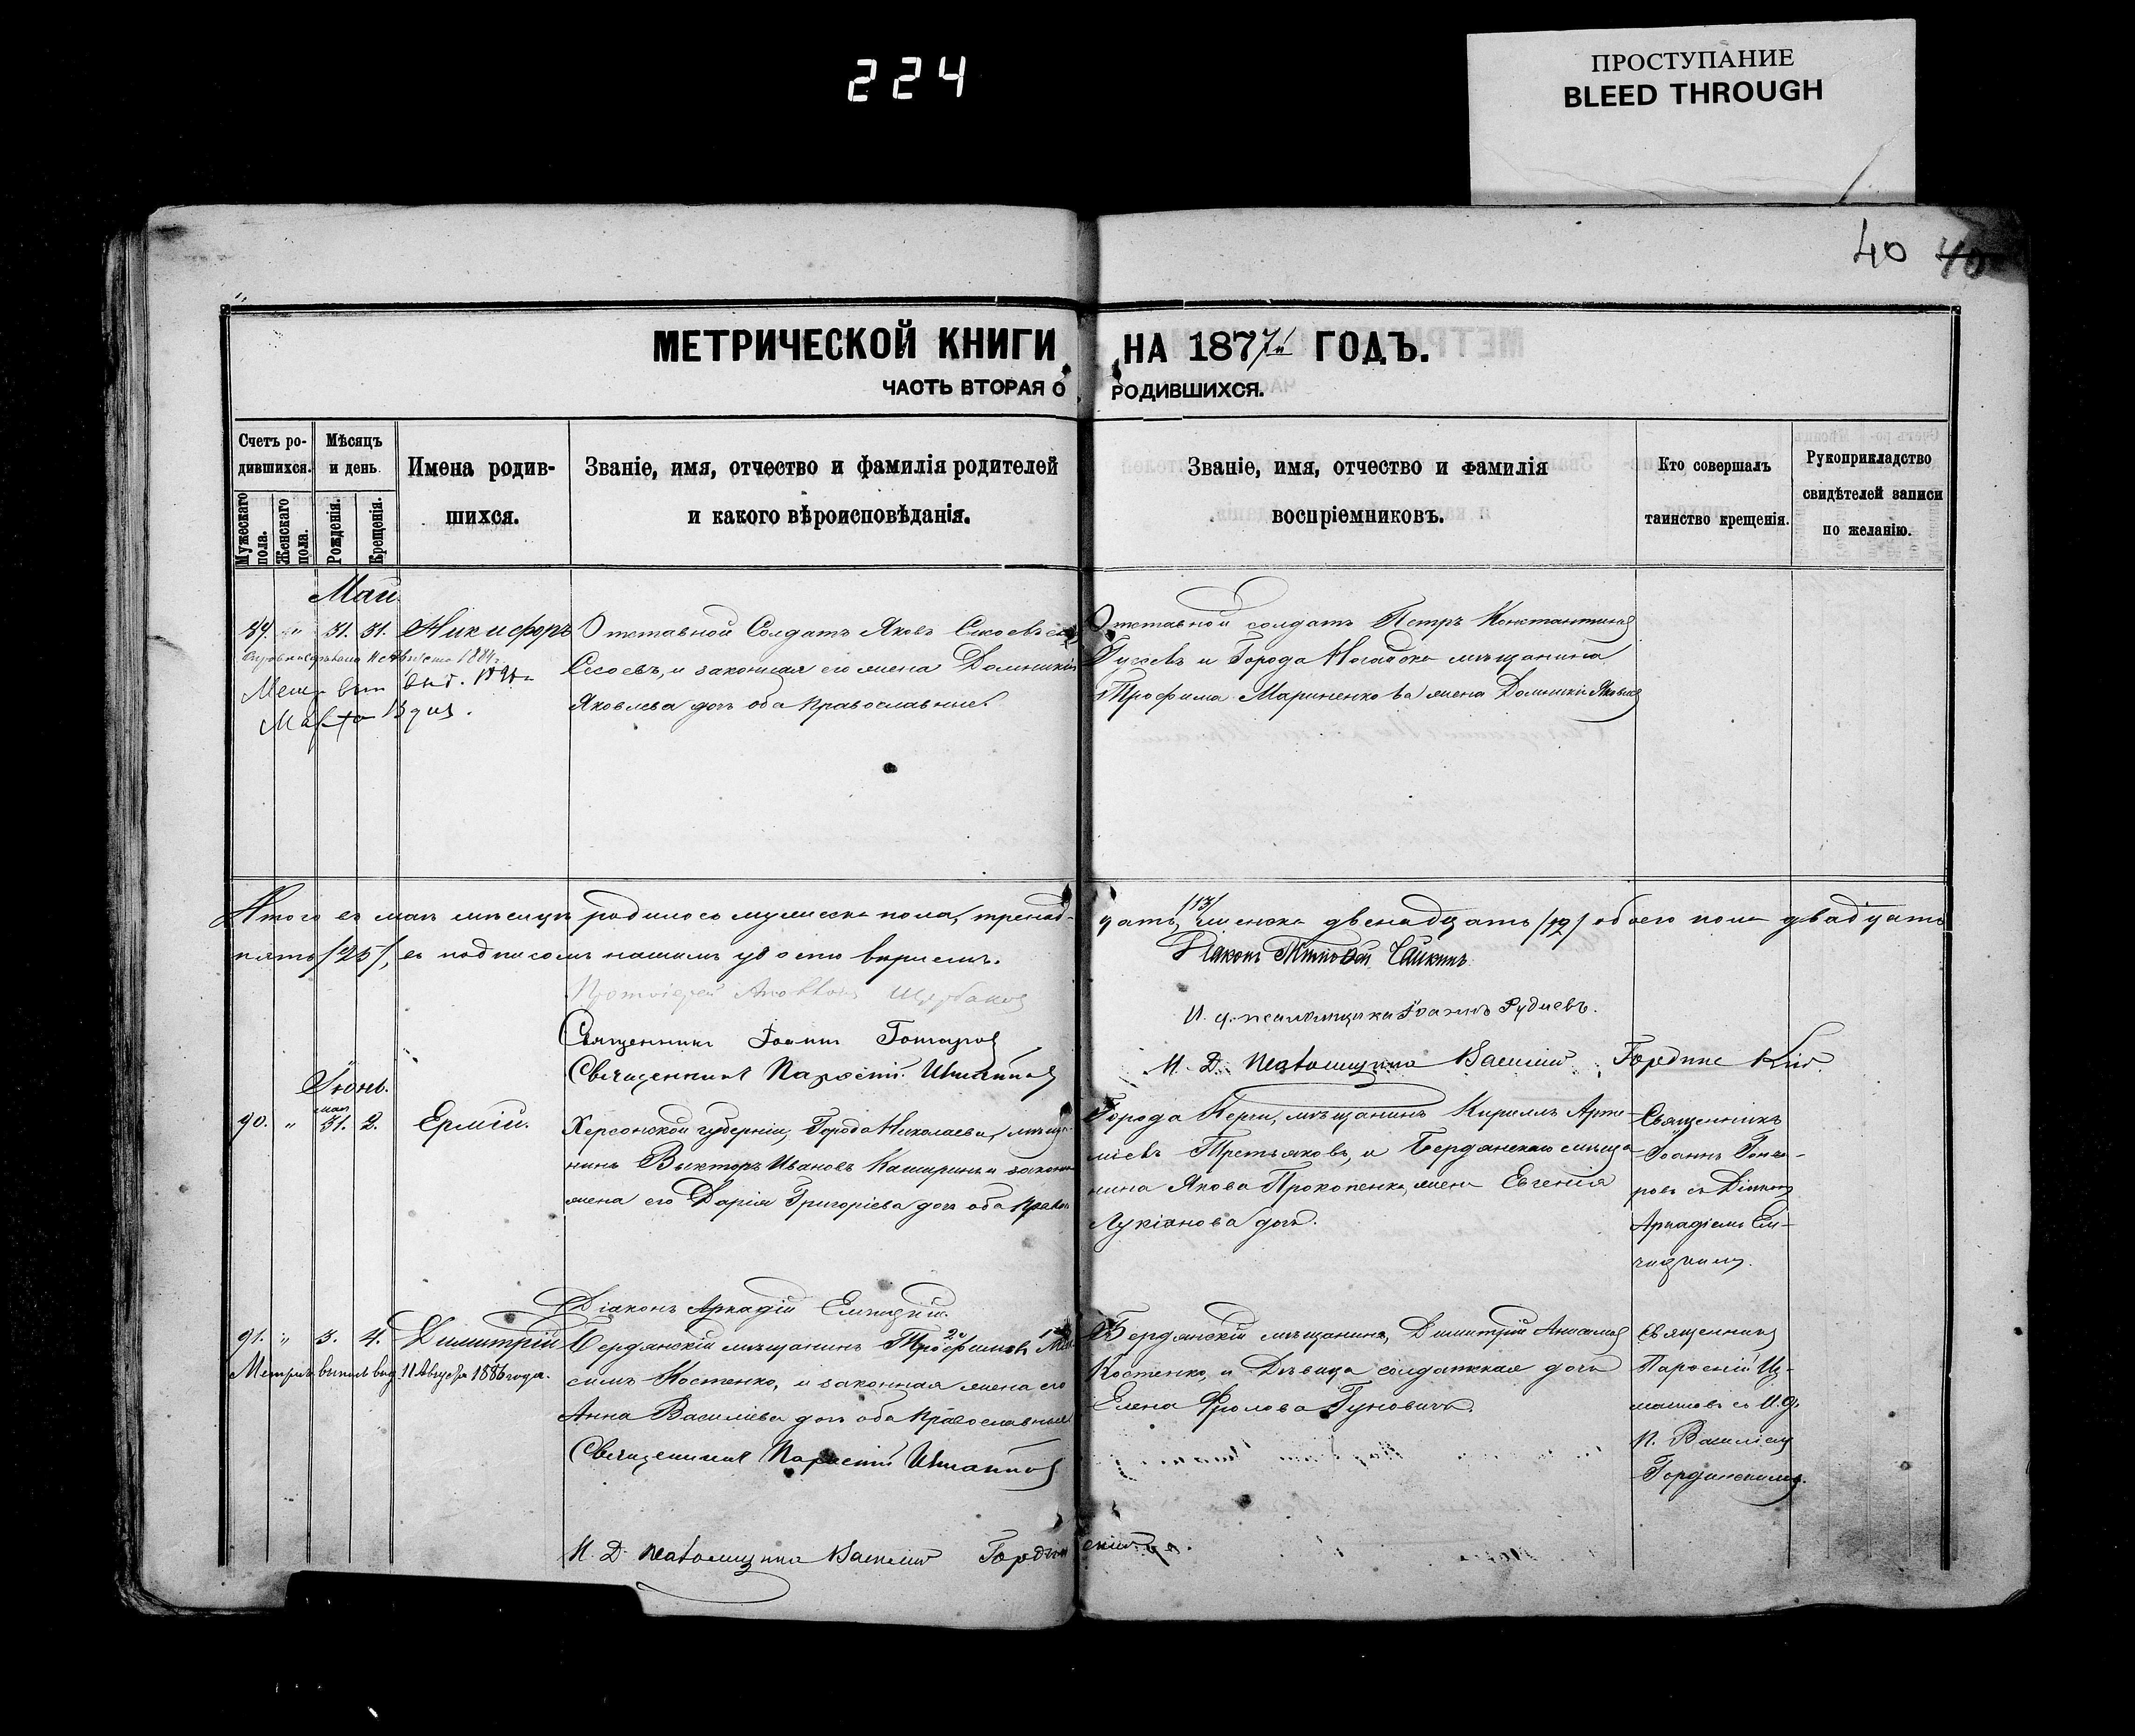 224
ПРОСТУПАНИЕ
BLEED THROUGH
40 40
МЕТРИЧЕСКОЙ КНИГИ НА 1877й ГОДЪ.
ЧАСТЬ ВТОРАЯ О РОДИВШИХСЯ.
Счетъ родившихся.
Мужескаго пола.
Женскаго пола.
Мѣсяцъ и день.
Рожденія.
Крещенія.
Имена родив-
шихся.
Званіе, имя, отчество и фамилія родителей
и какого вѣроисповѣданія.
Званіе, имя, отчество и фамилія
воспріемниковъ.
Кто совершалъ
таинство крещенія.
Рукоприкладство
свидѣтелей записи
по желанію.
Май.
" 31. 31. Никифоръ
Марта 13 дня.
Отставной Солдатъ Яковъ
Сысоевъ, и законная его жена Домникія
Яковлева дочь оба православные.
Отставной солдатъ Петръ Константиновъ
Гусевъ и Города Ногайска мѣщанина
Трофима Мариненкова жена Домникія Яковлева
Итого въ маѣ мѣсяцѣ родилось мужеска пола, тринад-
цать /13/ женска двенадцать /12/ обоего пола двадцать
пять /25/, въ
Діаконъ
Протоіерей
Священникъ Іоаннъ Гончаровъ
И. д. псаломщика Іоаннъ Рудневъ.
Священникъ Парѳеній
И. Д. Псаломщика Василій Гординскій.
Іюнь.
90. " мая 31. 2. Ермій.
Херсонской губерніи, Города Николаева, мѣща-
нинъ Викторъ Ивановъ Каширинъ и законная
жена его Дарія Григоріева дочь оба правосл.
Города Керчи, мѣщанинъ Кириллъ Арте-
міевъ Третьяковъ, и Бердянскаго мѣща-
нина Якова Прокопенко, жена Евгенія
Лукіанова дочь.
Священникъ
Іоаннъ Гонча-
ровъ съ Діакономъ
Аркадіемъ Ем-
Діаконъ Аркадій
91. " 3. 4. Димитрій
Метрич. выпись выд. 11 Августа 1886 года.
Бердянскій мѣщанинъ Трофимовъ Мак-
симъ Костенко, и законная жена его
Анна Васильева дочь оба православные
Бердянскій мѣщанинъ, Димитрій Анисимовъ
Костенко, и Дѣвица солдатская дочь
Елена Фролова Гуновичъ.
Священникъ
Парѳеній Из-
маиловъ съ И. д.
П. Василіемъ
Гординскимъ.
Священникъ Парѳеній
И. Д. Псаломщика Василій Гординскій.